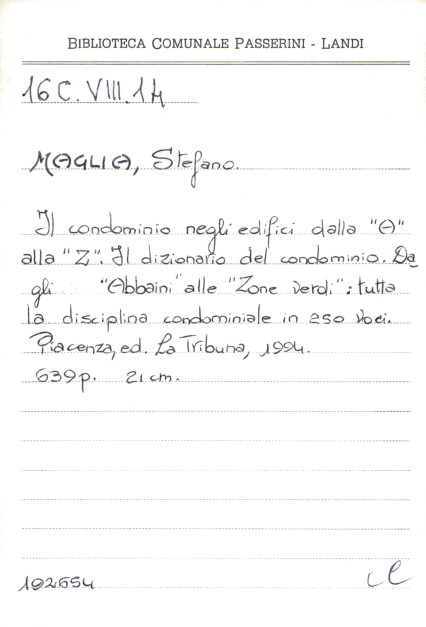 BIBLIOTECA COMUNALE PASSERINI - LANDI
16 C. VIII. 14
MAGLIA, Stefano.
Il condominio negli edifici dalla "A"
alla "Z". Il dizionario del condominio. Da
gli "Abbaini" alle "Zone verdi": tutta
la disciplina condominiale in 250 voci.
Piacenza, ed. La Tribuna, 1994.
639 p. 21 cm.
192654